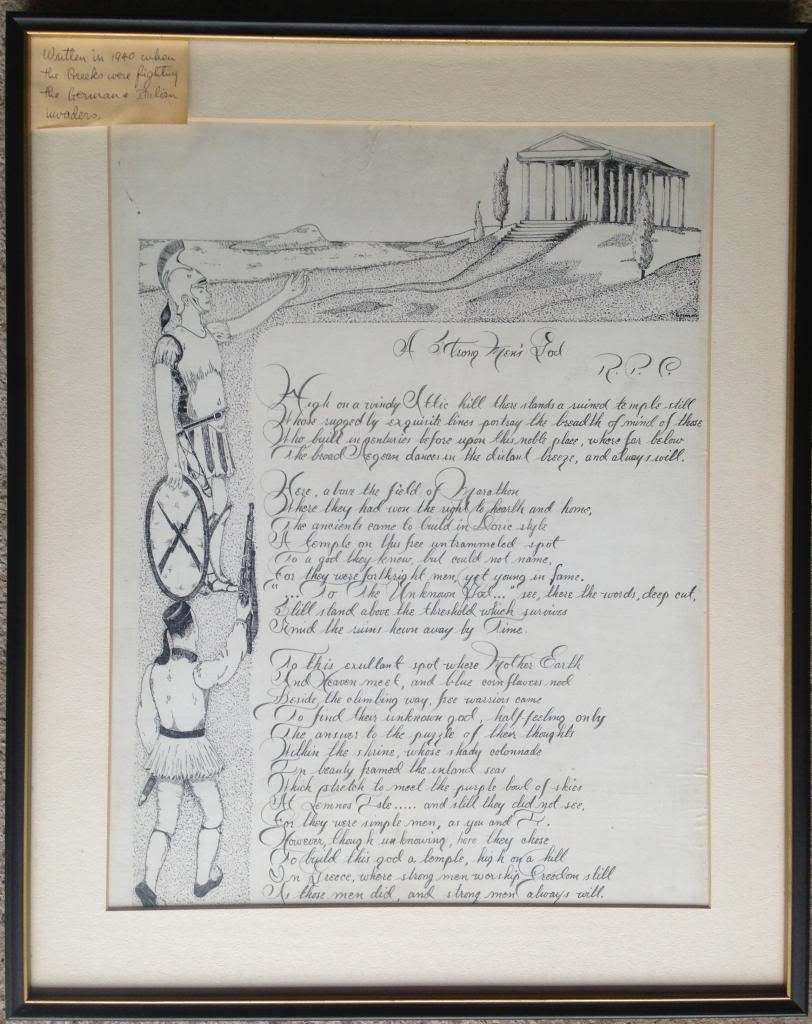 Written in 1940 when
the Greeks were fighting
the German & Italian
invaders
A Strong Men's God
R. P. C.
High on a windy Attic hill there stands a ruined temple still
Whose rugged by exquisite lines portray the breadth of mind of those
Who built in centuries before upon this noble place, where far below
The broad Aegean dances in the distant breeze, and always will.
Here, above the field of Marathon
Where they had won the right to hearth and home,
The ancients came to build in Doric style
A temple on this free untrammeled spot
To a god they knew, but could not name,
For they were forthright men, yet young in fame.
"... To The Unknown God..." see, there the words, deep cut,
Still stand above the threshold which survives
Amid the ruins hewn away by Time.
To this exultant spot where Mother Earth
And Heaven meet, and blue cornflowers nod
Beside the climbing way, free warriors came
To find their unknown god, half feeling only
The answer to the puzzle of their thoughts
Within the shrine, whose shady colonnade
In beauty framed the inland seas
Which stretch to meet the purple bowl of skies
At Lemnos Isle..... and still they did not see,
For they were simple men, as you and I.
However, though unknowing, here they chose
To build this god a temple, high on a hill
In Greece, where strong men worship Freedom still
As those men did, and strong men always will.